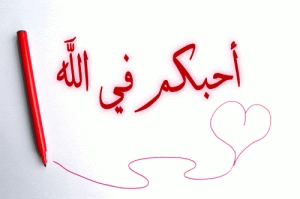 أحبكم في اللَّه